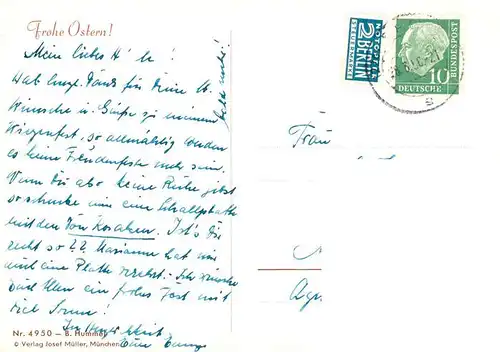 Frohe Ostern!
Mein liebes H
Hab herzl. Dank für Deine lb.
Wünsche u. Grüße zu meinem
Wiegenfest, so allmählig werden
es keine Freudenfeste mehr sein.
Wenn Du aber keine Ruhe gibst
so schenke mir eine Schallplatte
mit den Don Kosaken. Ist's Dir
recht so?? Marianne hat mir
auch eine Platte
Euch Allen ein frohes Fest mit
viel Sonne!
In Herzlichkeit
Eure
Nr. 4950 – B. Hummel
© Verlag Josef Müller, München
NOTOPFER
2 BERLIN
STEUERMARKE
DEUTSCHE
BUNDESPOST
10
Frau